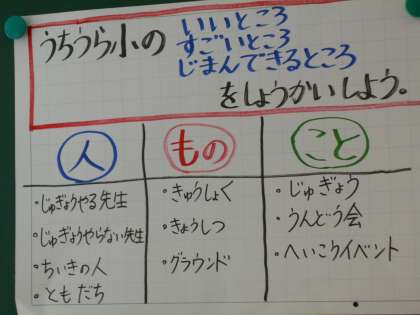 いいところ
うちうら小の すごいところ
じまんできるところ
をしょうかいしよう。
人 もの こと
・じゅぎょうやる先生
・じゅぎょうやらない先生
・ちいきの人
・ともだち
・きゅうしょく
・きょうしつ
・グラウンド
・じゅぎょう
・うんどう会
・へいこうイベント